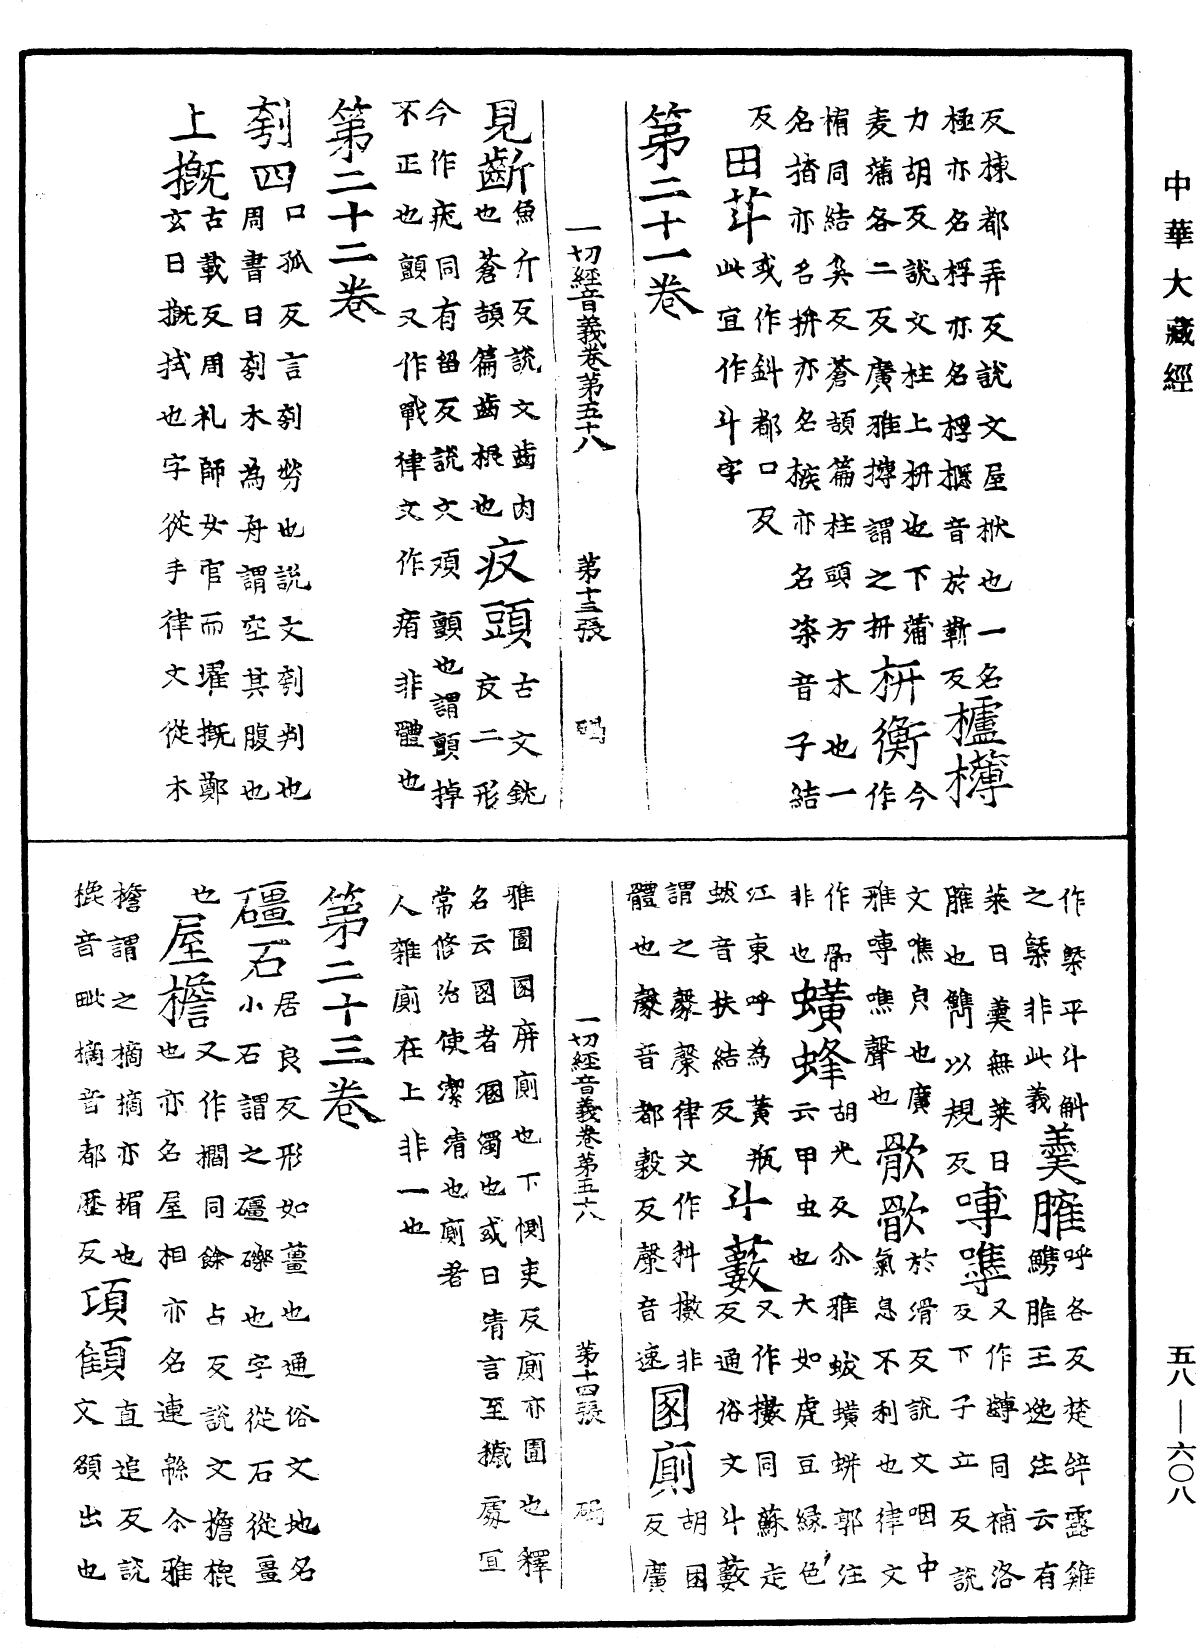 中華大藏經
反棟都弄反說文屋栿也一名
極亦名桴亦名檼音於靳反
櫨欂
力胡反說文柱上枅也下蒲
麦蒲各二反廣雅欂謂之枅
枅衡
今作
楣同結奚反蒼頡篇柱頭方木也一
名㭼亦名枅亦名㮞亦名楶音子結
反
田䒑
或作㪷都口反
此宜作斗字
第二十一卷
一切經音義卷第五十八 第十三張 碣
見齗
魚斤反說文齒肉
也蒼頡篇齒根也
疢頭
古文䚇
疢二形
今作疣同有留反說文頄顫也謂顫掉
不正也顫又作戰律文作痏非體也
第二十二卷
刳四
口孤反言刳剺也說文刳判也
周書曰刳木為舟謂空其腹也
上摡
古載反周礼師女官而濯摡鄭
玄曰摡拭也字從手律文從木
作㮣平斗斛
之㮣非此義
羹臛
呼各反楚辞露雞
鷄臛王逸注云有
菜曰羹無菜曰
臛也觹以規反
嗚噍
又作囀同補洛
反下子立反說
文噍皃也廣
雅嗚噍聲也
㱁㱁
於滑反說文咽中
氣息不利也律文
作㖧
非也
蟥蜂
胡光反尒雅蛂蟥蛢郭注
云甲虫也大如虎豆緑色
江東呼為黃瓶
蛂音扶結反
斗藪
又作擻同蘇走
反通俗文斗藪
謂之㲉㲉律文作抖擻非
體也㲉音都穀反㲉音速
圂廁
胡困
反廣
雅圊圂屏廁也下惻吏反廁亦圊也釋
名云圂者溷濁也或曰清言至穢處宜
常修治使潔清也廁者
人雜廁在上非一也
一切經音義卷第五十八 第十四張 碣
第二十三卷
礓石
居良反形如薑也通俗文地名
小石謂之礓礫也字從石從畺
也
屋檐
又作櫩同餘占反說文檐梍
也亦名屋相亦名連緜尒雅
檐謂之樀樀亦楣也
梍音毗樀音都歷反
項顀
直追反說
文額出也
五八—六〇八